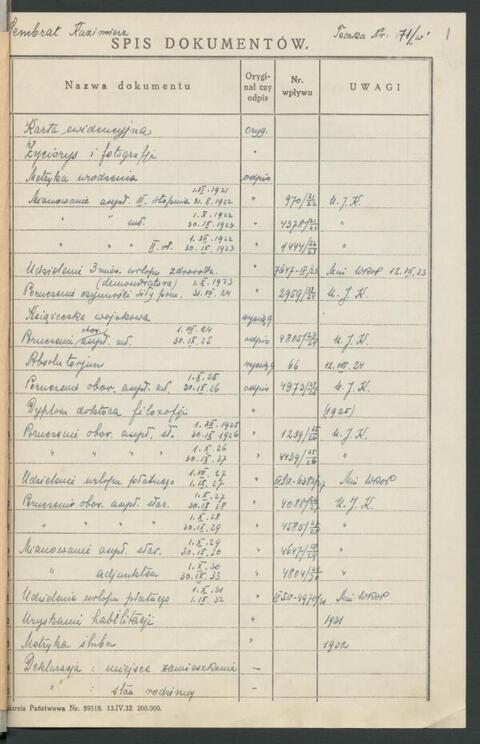 Sembrat Kazimierz Teczka Nr. 71/w 1
SPIS DOKUMENTÓW.
Nazwa dokumentu Orygi- Nr. UWAGI
nał czy wpływu
odpis
Karta ewidencyjna oryg.
Życiorys i fotografja "
Metryka urodzenia odpis
1.XI.1921
Mianowanie asyst. III. stopnia 31.8.1922 " 970/21/22 U. J. K.
1.X.1922
" " mł. 30.IX.1923 " 4378/21/22 "
1.XII.1922
" " II. st. 30.IX.1923 " 1444/22/23 "
Udzielenie 3 mies. urlopu zdrowotn. " 7647-IV/23 Min WROP 12.VII.23
(demonstratora) 1.X.1923
Poruczenie czynności siły pom. 31.VII.24 " 2959/23/24 U. J. K.
Książeczka wojskowa wyciąg
obow. 1.VII.24
Poruczenie asyst. mł. 30.IX.25 odpis 4805/23/24 U. J. K.
Absolutorjum wyciąg 66 12.VII.24
1.X.25
Poruczenie obow. asyst. mł 30.IX.26 odpis 4973/25/26 U. J. K.
Dyplom doktora filozofji " (1925)
1.XII.1925
Poruczenie obow. asyst. st. 30.IX.1926 " 1239/25/26 U. J. K.
1.X.26
" " " " 30.IX.27 " 4439/25/26 "
1.VII.27
Udzielenie urlopu płatnego 1.IX.27 " Min WROP
1.X.27
Poruczenie obow. asyst. star. 30.IX.28 " U. J. K.
1.X.28
" " " " 30.IX.29 " "
1.X.29
Mianowanie asyst. star. 30.IX.30 " "
1.X.30
" adjunktem 30.IX.33 " 4804/29/30 "
1.X.31
Udzielenie urlopu płatnego 1.IX.32 " Min WROP
Uzyskanie habilitacji " 1931
Metryka ślubu " 1932
Deklaracja : miejsce zamieszkania —
" : stan rodzinny —
karnia Państwowa Nr. 59518. 13.IV.32. 200.000.